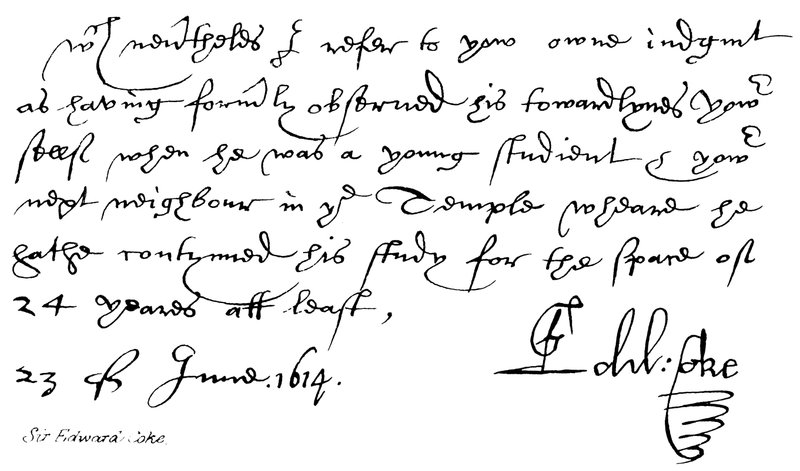 wch neu'theles I refer to yow owne iudgmt
as having form'ly observed his towardlynes yowr
self when he was a young studient & yowr
next neighbour in ye Temple wheare he
hathe contynued his study for the space of
24 yeares att least,
23 of June. 1614. Edw: Coke
Sir Edward Coke